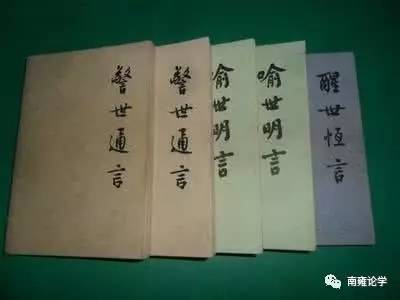 警世通言
警世通言
喻世明言
喻世明言
醒世恒言
南雍论学